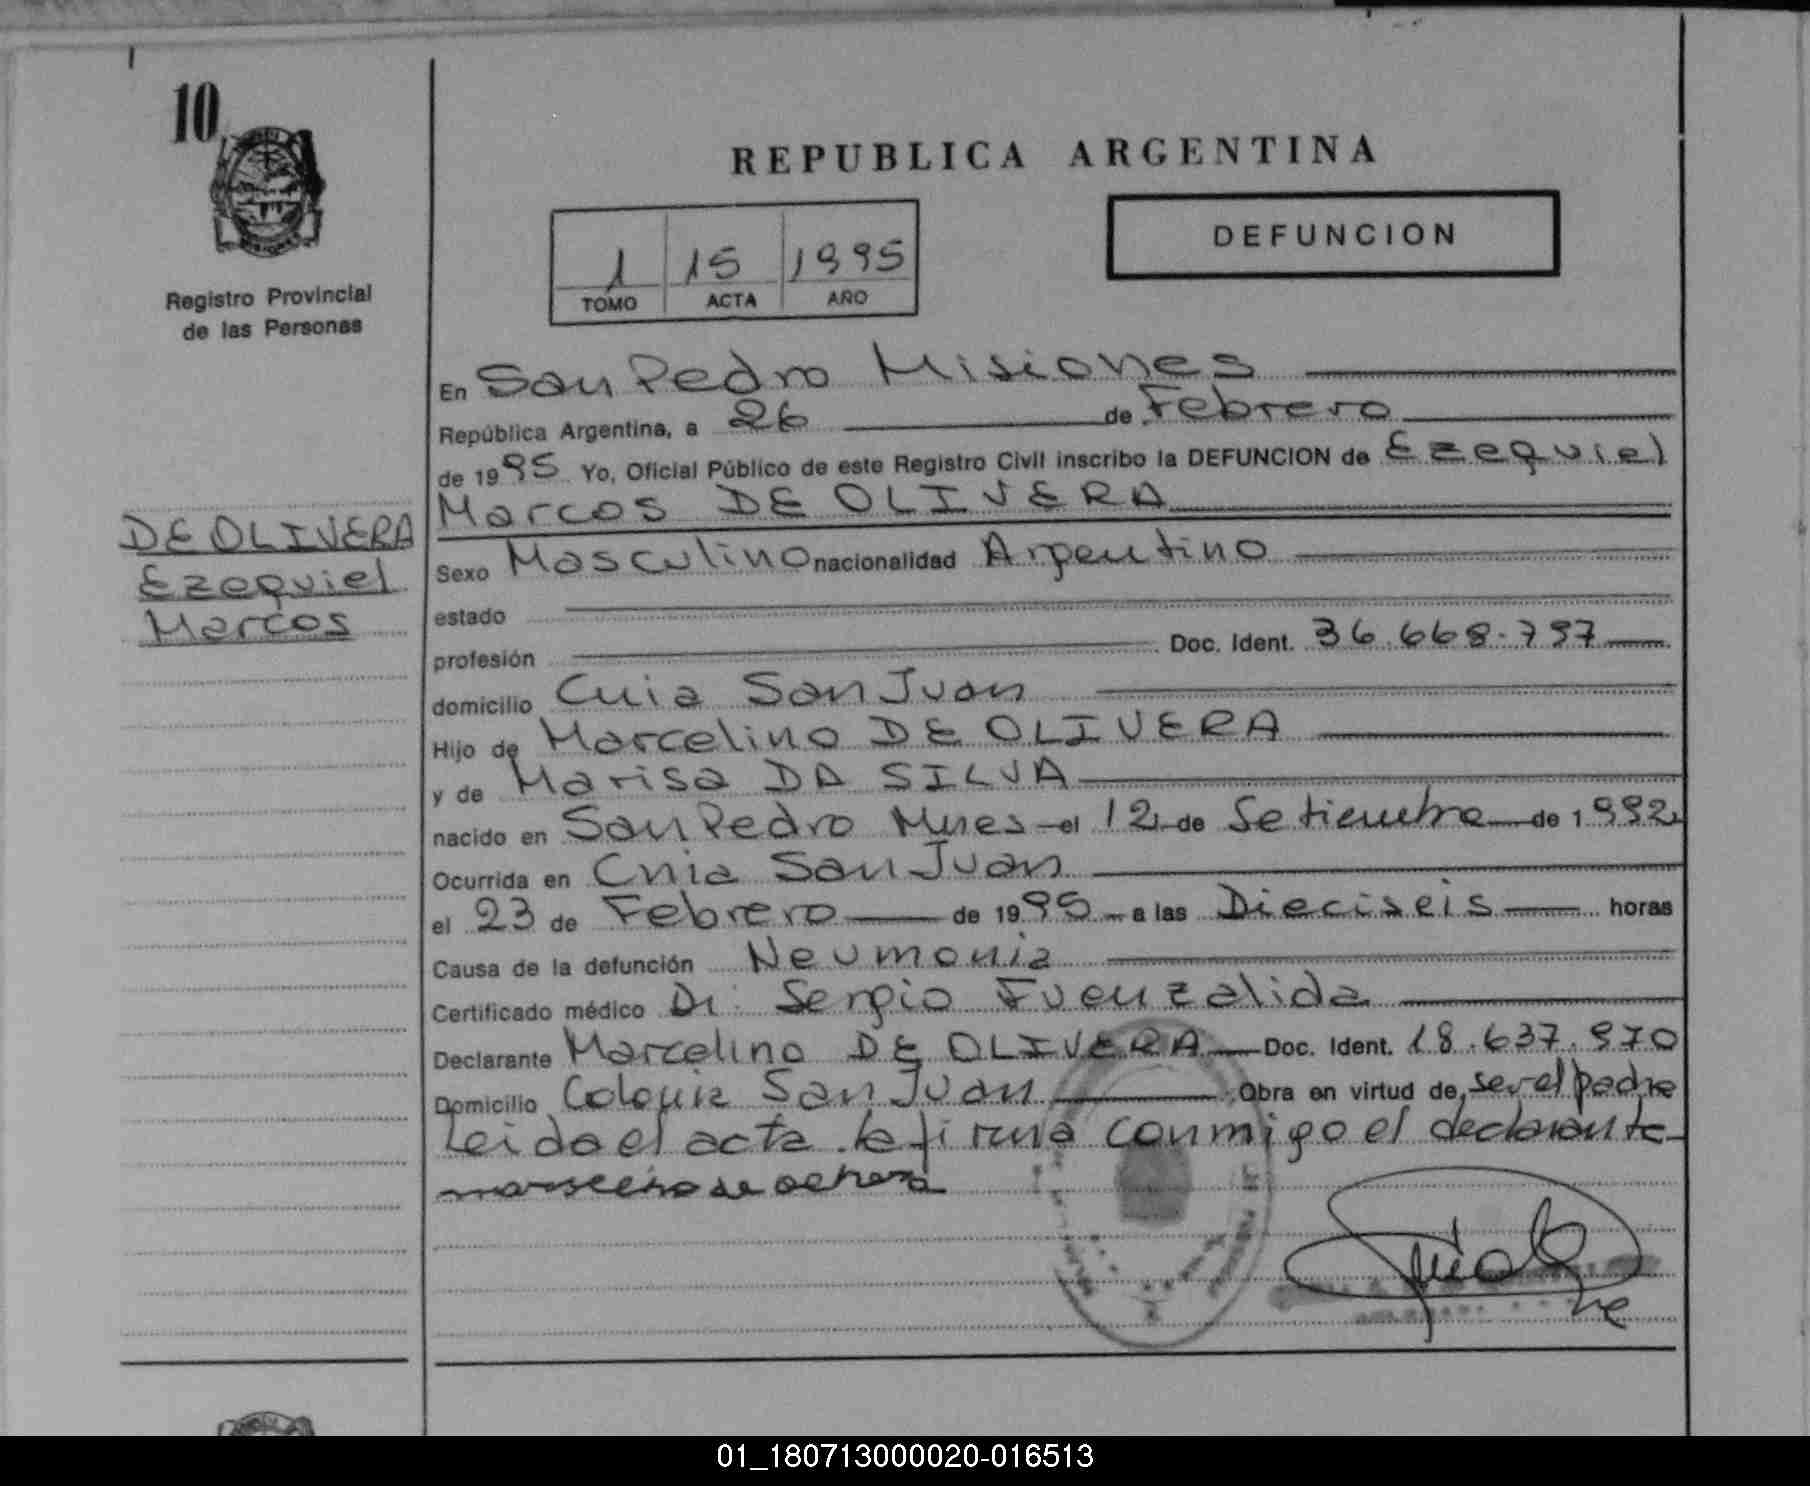 10
Registro Provincial
de las Personas
DE OLIVERA
Ezequiel
Marcos
REPUBLICA ARGENTINA
1 15 1995
TOMO ACTA AÑO
DEFUNCION
En San Pedro Misiones
República Argentina, a 26 de Febrero
de 1995 Yo, Oficial Público de este Registro Civil inscribo la DEFUNCION de Ezequiel
Marcos DE OLIVERA
Sexo Masculino nacionalidad Argentino
estado
profesión Doc. Ident. 36.668.797
domicilio Cnia San Juan
Hijo de Marcelino DE OLIVERA
y de Marisa DA SILVA
nacido en San Pedro Mnes el 12 de Setiembre de 1992
Ocurrida en Cnia San Juan
el 23 de Febrero de 1995 a las Dieciseis horas
Causa de la defunción Neumonia
Certificado médico Dr. Sergio Fuenzalida
Declarante Marcelino DE OLIVERA Doc. Ident. 18.637.970
Domicilio Colonia San Juan Obra en virtud de ser el padre
Leida el acta la firma conmigo el declarante
01_180713000020-016513